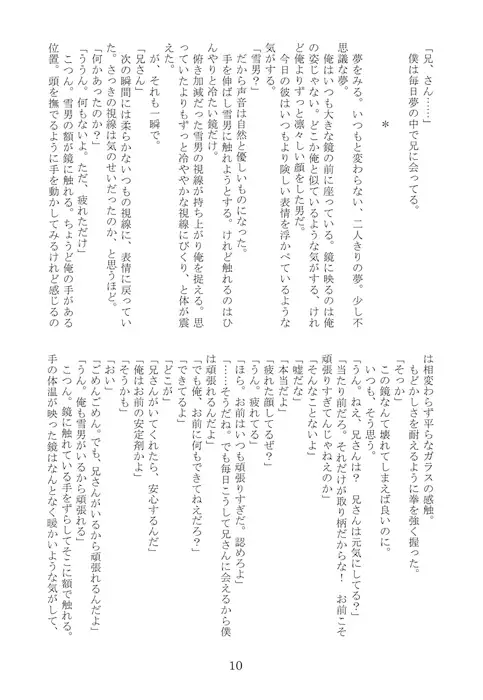 「兄、さん……」
僕は毎日夢の中で兄に会ってる。
＊
夢をみる。いつもと変わらない、二人きりの夢。少し不
思議な夢。
俺はいつも大きな鏡の前に座っている。鏡に映るのは俺
の姿じゃない。どこか俺と似ているような気がする、けれ
ど俺よりずっと凛々しい顔をした男だ。
今日の彼はいつもより険しい表情を浮かべているような
気がする。
「雪男？」
だから声音は自然と優しいものになった。
手を伸ばし雪男に触れようとする。けれど触れるのはひ
んやりと冷たい鏡だけ。
俯き加減だった雪男の視線が持ち上がり俺を捉える。思
っていたよりもずっと冷ややかな視線にびくり、と体が震
えた。
が、それも一瞬で。
「兄さん」
次の瞬間には柔らかないつもの視線に、表情に戻ってい
た。さっきの視線は気のせいだったのか、と思うほど。
「何かあったのか？」
「ううん。何もないよ。ただ、疲れただけ」
こつん。雪男の額が鏡に触れる。ちょうど俺の手がある
位置。頭を撫でるように手を動かしてみるけれど感じるの
は相変わらず平らなガラスの感触。
もどかしさを耐えるように拳を強く握った。
「そっか」
この鏡なんて壊れてしまえば良いのに。
いつも、そう思う。
「うん。ねえ、兄さんは？　兄さんは元気にしてる？」
「当たり前だろ。それだけが取り柄だからな！　お前こそ
頑張りすぎてんじゃねえのか」
「そんなことないよ」
「嘘だな」
「本当だよ」
「疲れた顔してるぜ？」
「うん。疲れてる」
「ほら。お前はいつも頑張りすぎだ。認めろよ」
「……そうだね。でも毎日こうして兄さんに会えるから僕
は頑張れるんだよ」
「でも俺、お前に何もできてねえだろ？」
「できてるよ」
「どこが」
「兄さんがいてくれたら、安心するんだ」
「俺はお前の安定剤かよ」
「そうかも」
「おい」
「ごめんごめん。でも、兄さんがいるから頑張れるんだよ」
「うん。俺も雪男がいるから頑張れる」
こつん。鏡に触れている手をずらしてそこに額で触れる。
手の体温が映った鏡はなんとなく暖かいような気がして、
10